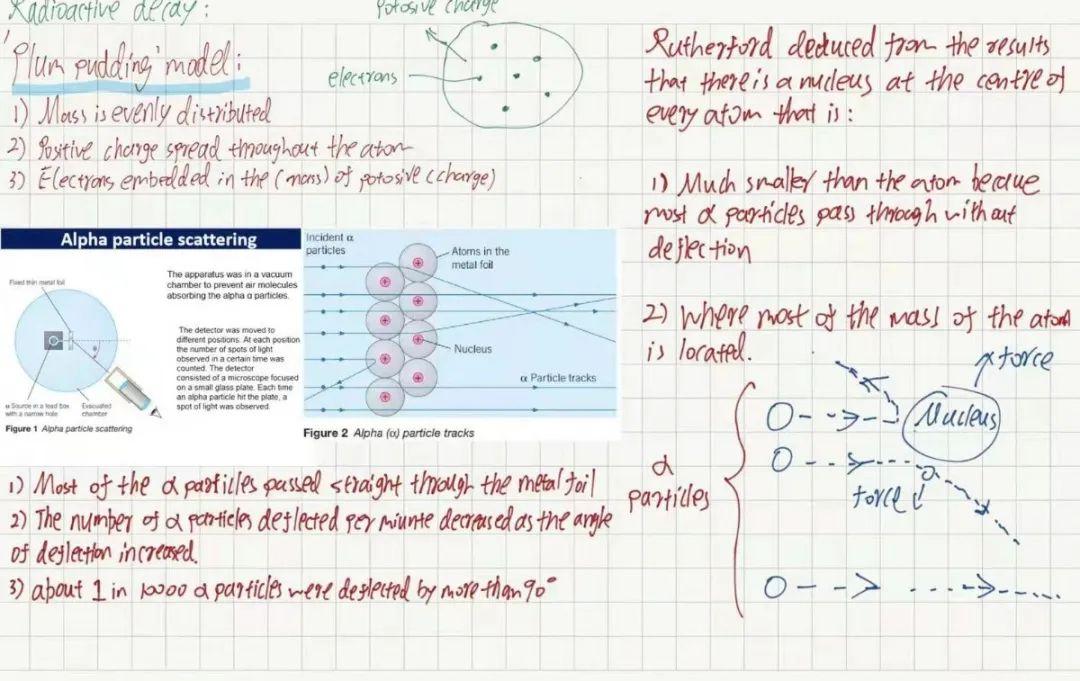 Radioactive decay:
Potosive charge
'Plum pudding' model:
electrons
1) Mass is evenly distributed
2) Positive charge spread throughout the atom
3) Electrons embedded in the (mass) of potosive (charge)
Alpha particle scattering
Fixed thin metal foil
α Source in a lead box
with a narrow hole
Evacuated
chamber
Figure 1 Alpha particle scattering
The apparatus was in a vacuum
chamber to prevent air molecules
absorbing the alpha α particles.
The detector was moved to
different positions. At each position
the number of spots of light
observed in a certain time was
counted. The detector
consisted of a microscope focused
on a small glass plate. Each time
an alpha particle hit the plate, a
spot of light was observed.
Incident α
particles
Atoms in the
metal foil
Nucleus
α Particle tracks
Figure 2 Alpha (α) particle tracks
1) Most of the α particles passed straight through the metal foil
2) The number of α particles deflected per miunte decreased as the angle
of deflection increased.
3) about 1 in 10000 α particles were deflected by more than 90°
Rutherford deduced from the results
that there is a nucleus at the centre of
every atom that is:
1) Much smaller than the atom becaue
most α particles pass through without
deflection
2) Where most of the mass of the atom
is located.
force
Nucleus
α
particles
force